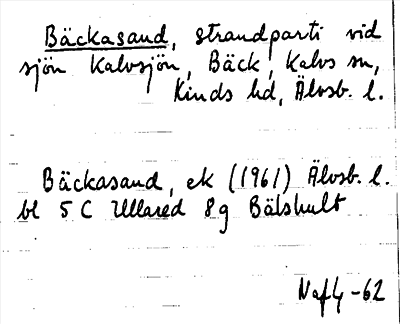 Bäckasand, strandparti vid
sjön Kalvsjön, Bäck, Kalvs sn,
Kinds hd, Älvsb. l.
Bäckasand, ek (1961) Älvsb. l.
bl 5 C Ullared 8 g Bälshult
-62